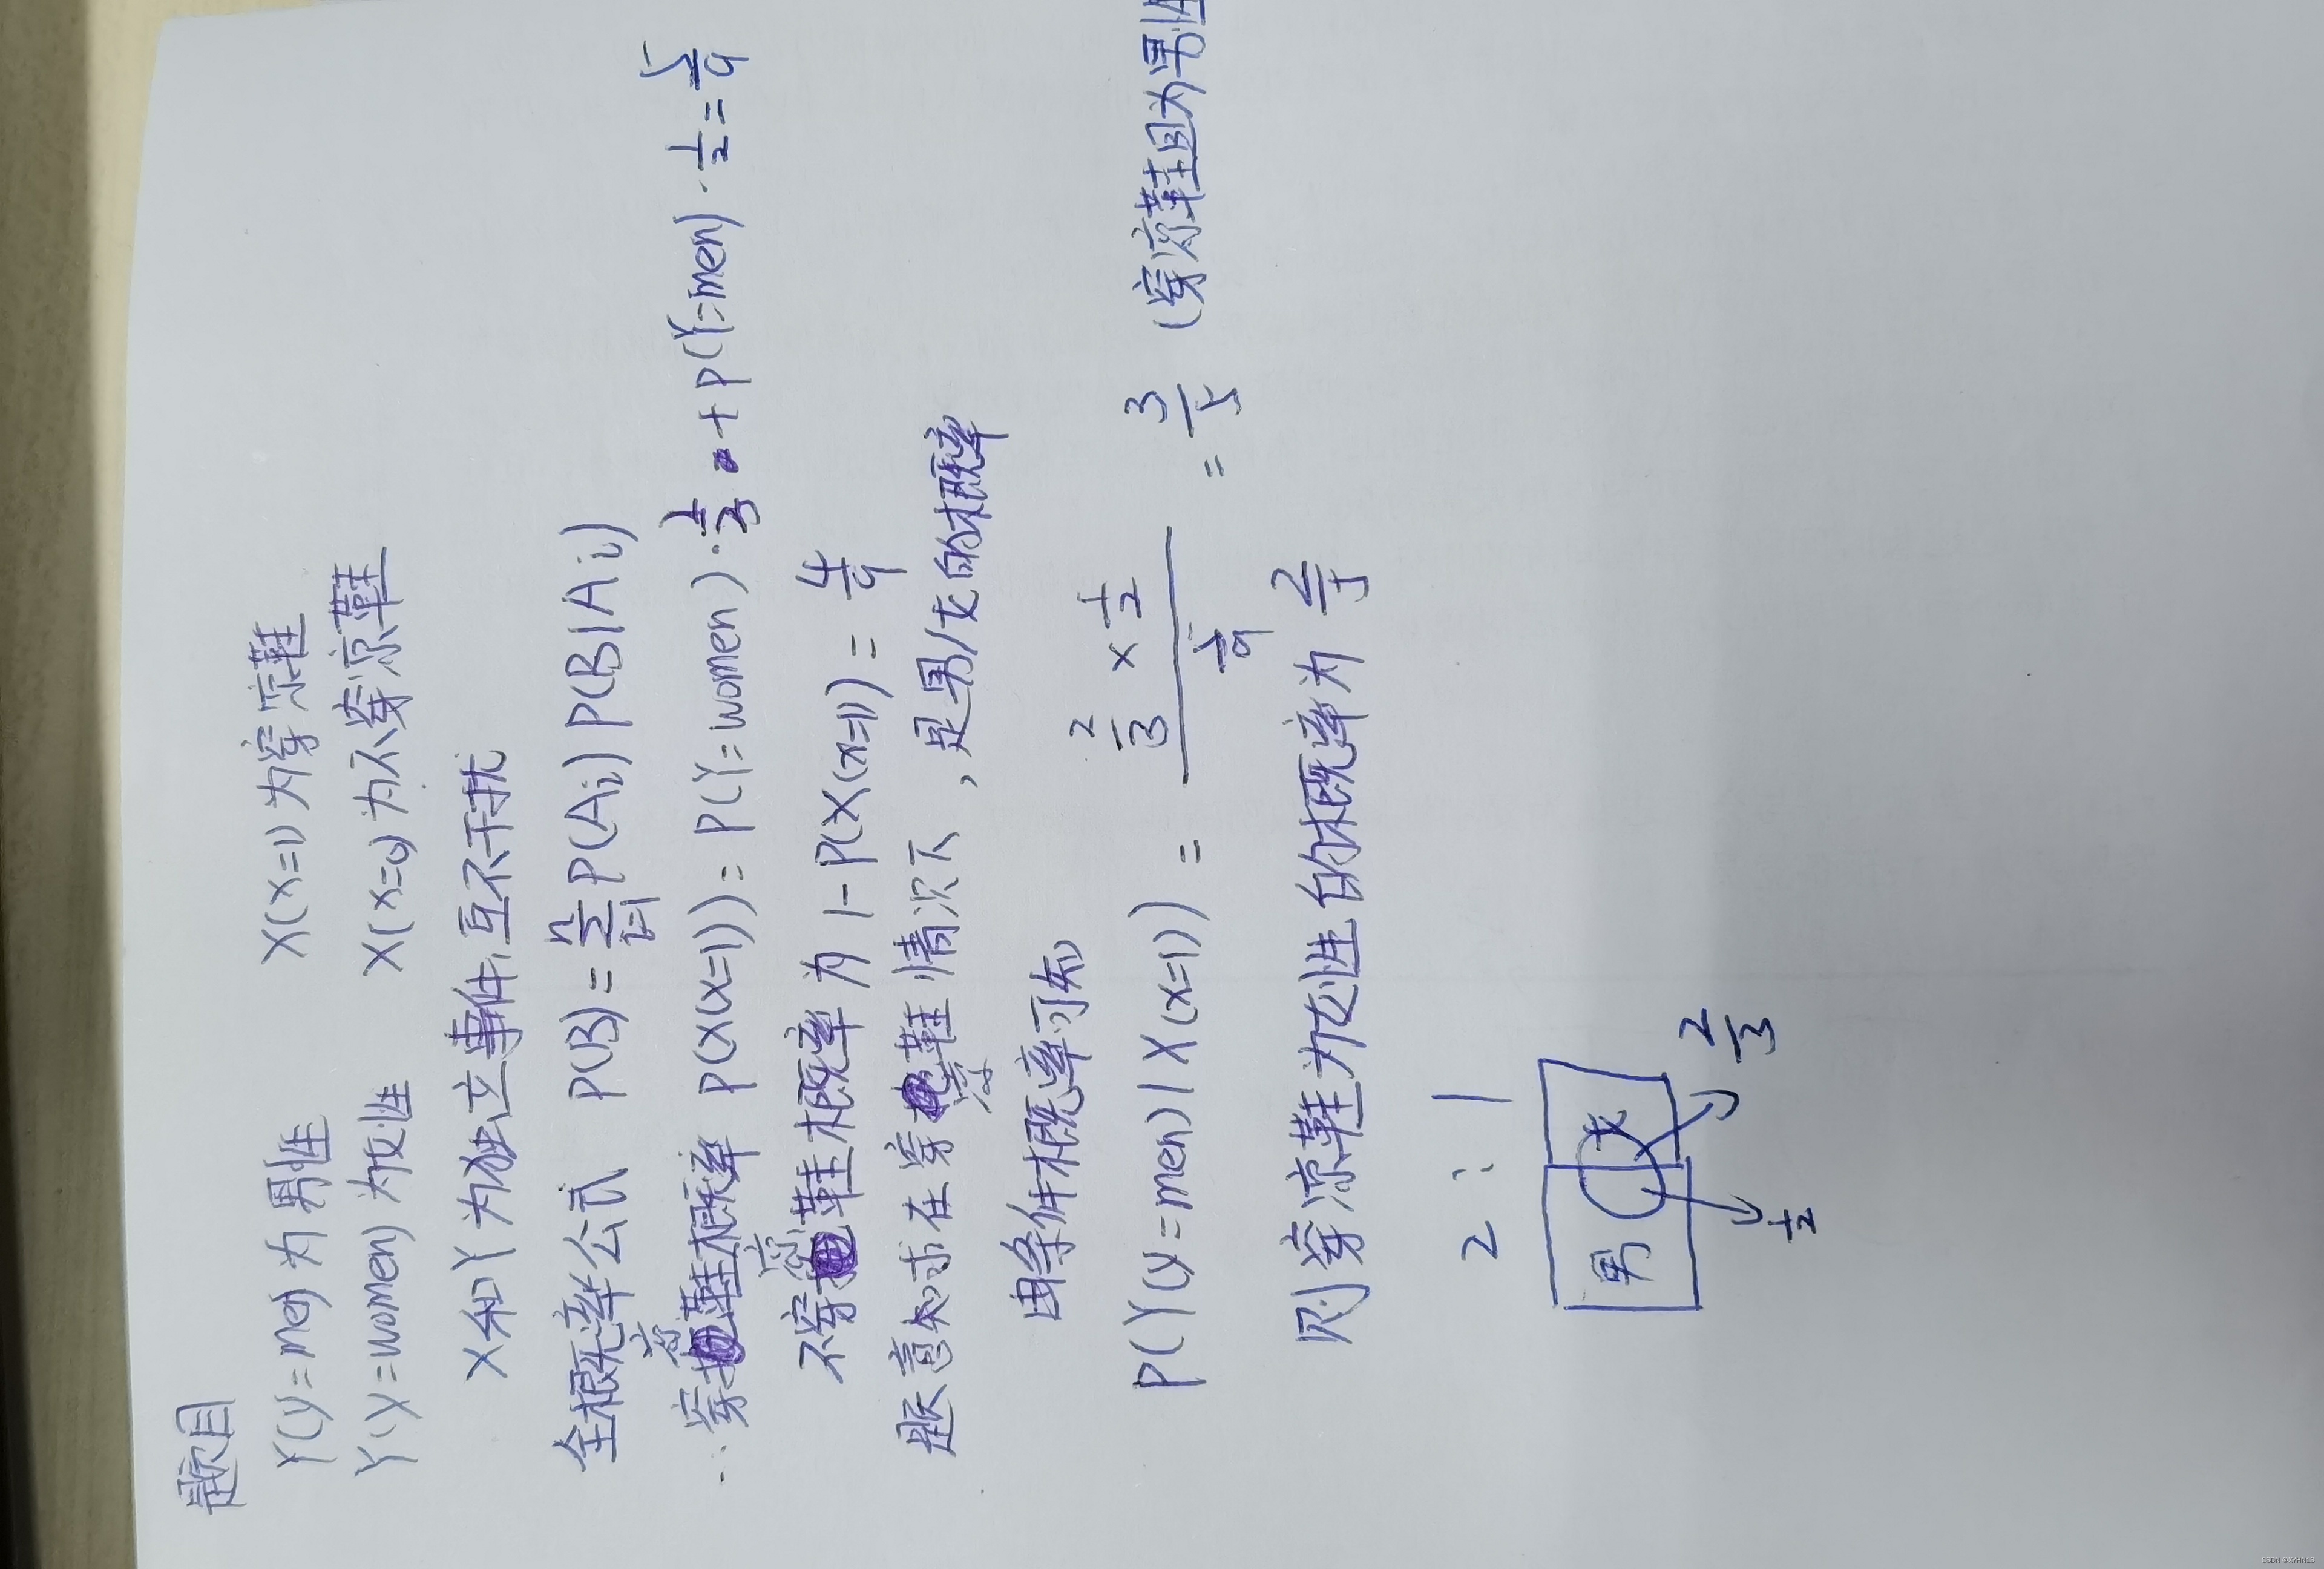 题目
Y(y=men) 为男性 X(x=1) 为穿凉鞋
Y(y=women) 为女性 X(x=0) 为不穿凉鞋
X和Y为独立事件,互不干扰
全概率公式 P(B)=∑P(Ai)P(B|Ai)
n
i=1
∴穿凉鞋概率 P(X(x=1))=P(Y=women)·2/3+P(Y=men)·1/2=5/9
不穿凉鞋概率为 1-P(X(x=1))=4/9
题意知求在穿凉鞋情况下,是男/女的概率
由条件概率可知
P(Y(y=men)|X(x=1))= 2/3×1/2 / 5/9 = 3/5 (穿凉鞋且为男性
则穿凉鞋为女性的概率为 2/5
2 : 1
男 女
1/2 2/3
CSDN